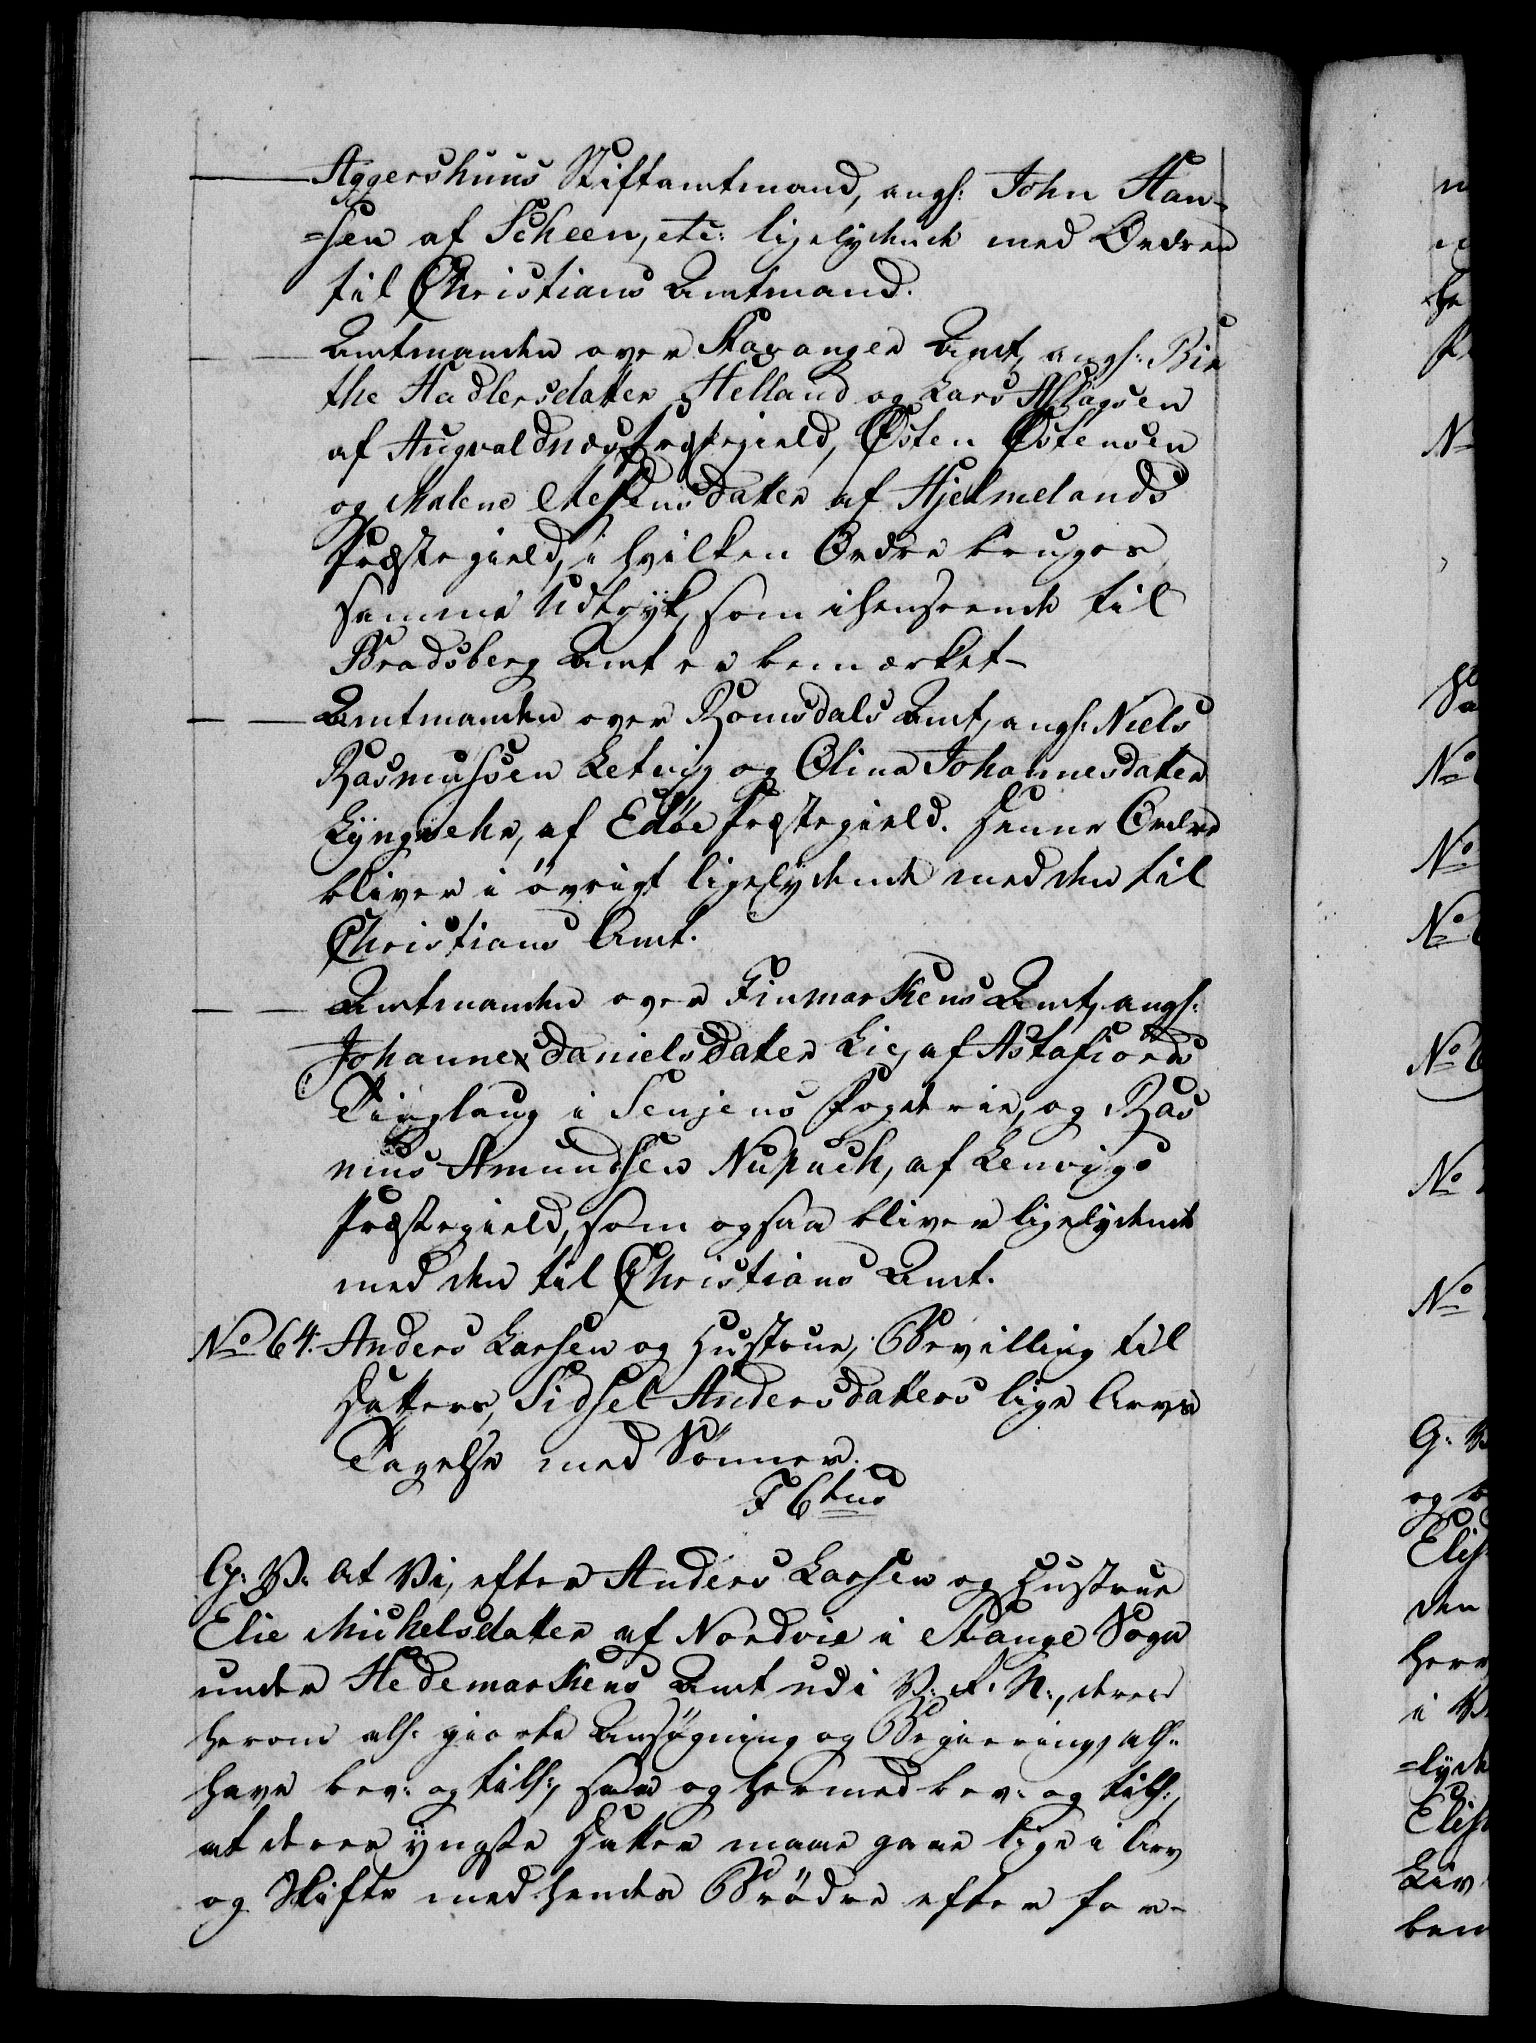 Aggershuus Stiftamtmand, angh: John Han-
=sen af Scheen, etc: ligelydende med Ordren
til Christians Amtmand.
Amtmanden over Stavanger Amt, angh: Bir
the Hadlersdatter Helland og Lars Aslagsen
af Augvaldnæs Præstegield, Østen Østensen
og Malene Chestensdatter af Hjelmelands
Præstegield, i hvilken Ordre bruges
samme Udtryk, som ihenseende til
Bradsberg Amt er bemærket-
Amtmanden over Romsdals Amt, angh: Niels
Rasmussen Letvig og Olina Johannesdatter
Lyngvehr, af Edøe Præstegield. Denne Ordre
bliver i øvrigt ligelydende med den til
Christians Amt.
Amtmanden over Finmarkens Amt, angh:
Johanne Danielsdatter Lie, af Astafiords
Tinglaug i Senjens Fogderie, og Ras
mus Amundsen Nupuch, af Lenvigs
Præstegield, som ogsaa bliver ligelydende
med den til Christians Amt.
No 64. Anders Larsen og Hustrue, Bevilling til
Datters, Sidsel Andersdatters lige Arve
Tagelse med Sønner.
F 6tus
G: V: At Vi, efter Anders Larsen og Hustrue
Elie Michelsdatter af Nordvie i Stange Sogn
under Hedemarkens Amt udi V: R: N:, deres
herom alh: giorte Ansøgning og Begiering, alh:
have bev: og tilh:, saa og hermed bev: og tilh:,
at deres yngste Datter maae gaae lige i Arv
og Skifte med hendes Brödre efter for-